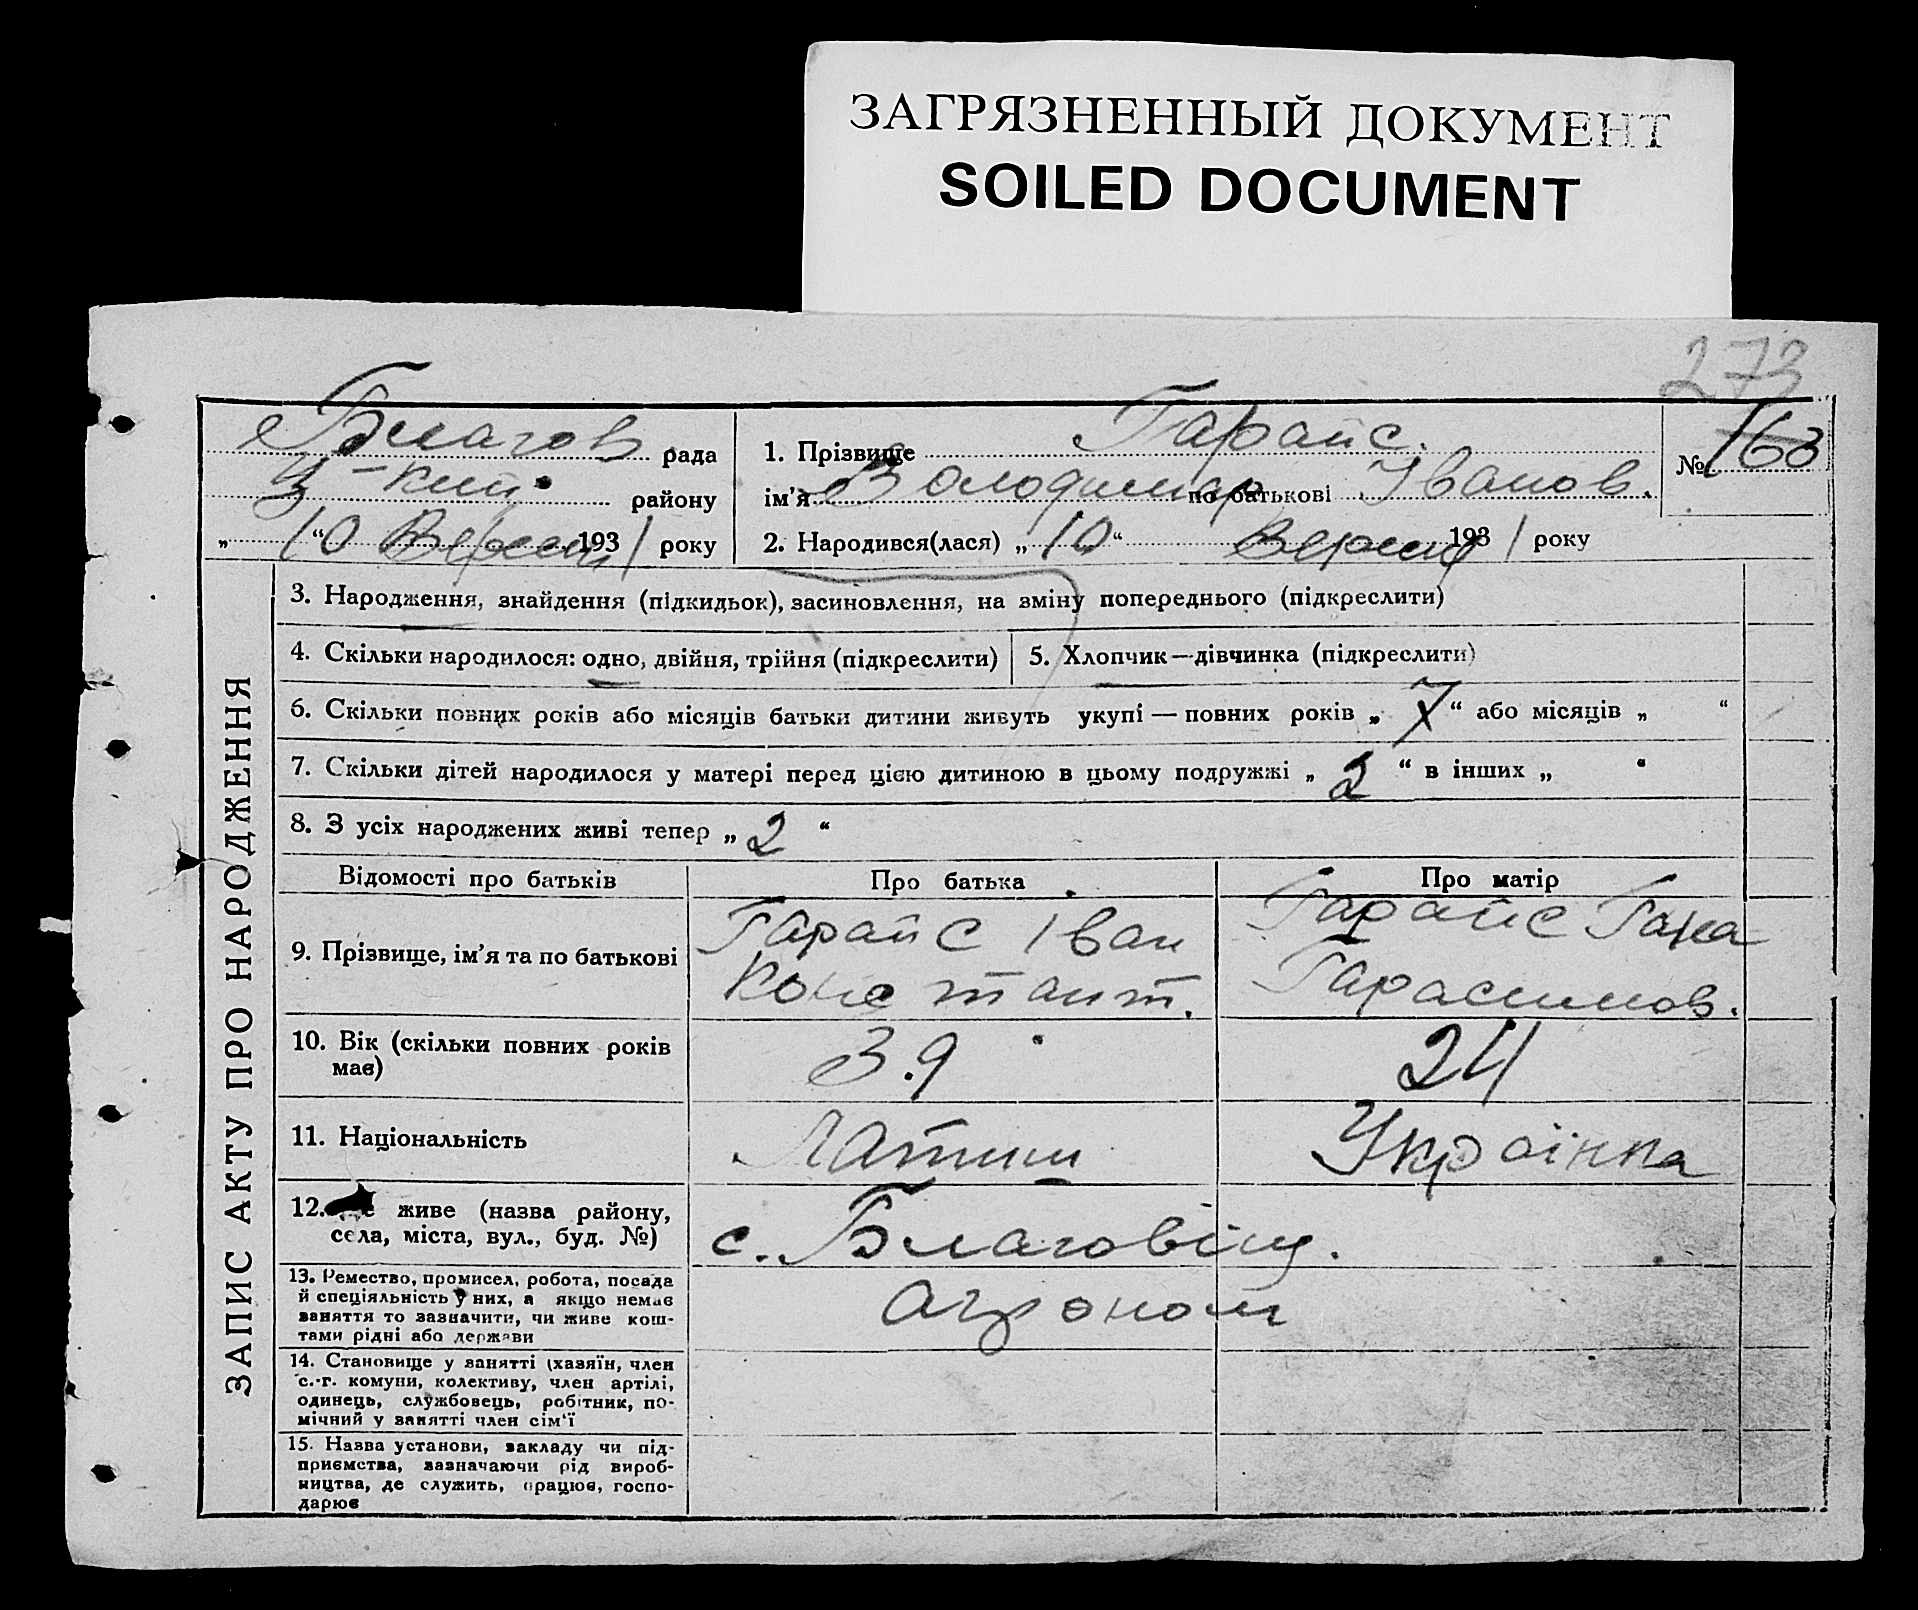 ЗАГРЯЗНЕННЫЙ ДОКУМЕНТ
SOILED DOCUMENT
273
Благов рада
району
„10“ Вересн 1931 року
1. Прізвище Гарайс.
ім’я Володимир по батькові Іванов.
№ 163
2. Народився(лася) „10“ Вересн 1931 року
ЗАПИС АКТУ ПРО НАРОДЖЕННЯ
3. Народження, знайдення (підкидьок), засиновлення, на зміну попереднього (підкреслити)
4. Скільки народилося: одно, двійня, трійня (підкреслити)
5. Хлопчик—дівчинка (підкреслити)
6. Скільки повних років або місяців батьки дитини живуть укупі — повних років „ 7 “ або місяців „ “
7. Скільки дітей народилося у матері перед цією дитиною в цьому подружжі „ 2 “ в інших „ “
8. З усіх народжених живі тепер „ 2 “
Відомості про батьків
Про батька
Про матір
9. Прізвище, ім’я та по батькові
Гарайс Іван
Констант.
Гарайс Гана
Гарасимов.
10. Вік (скільки повних років
має)
39
24
11. Національність
Латиш
Українка
12. живе (назва району,
села, міста, вул., буд. №)
с. Благовіщ.
13. Ремество, промисел, робота, посада
й спеціяльність у них, а якщо немає
заняття то зазначити, чи живе кош-
тами рідні або держави
агроном
14. Становище у занятті (хазяїн, член
с.-г. комуни, колективу, член артілі,
одинець, службовець, робітник, по-
мічний у занятті член сім‘ї
15. Назва установи, закладу чи під-
приємства, зазначаючи рід вироб-
ництва, де служить, працює, госпо-
дарює